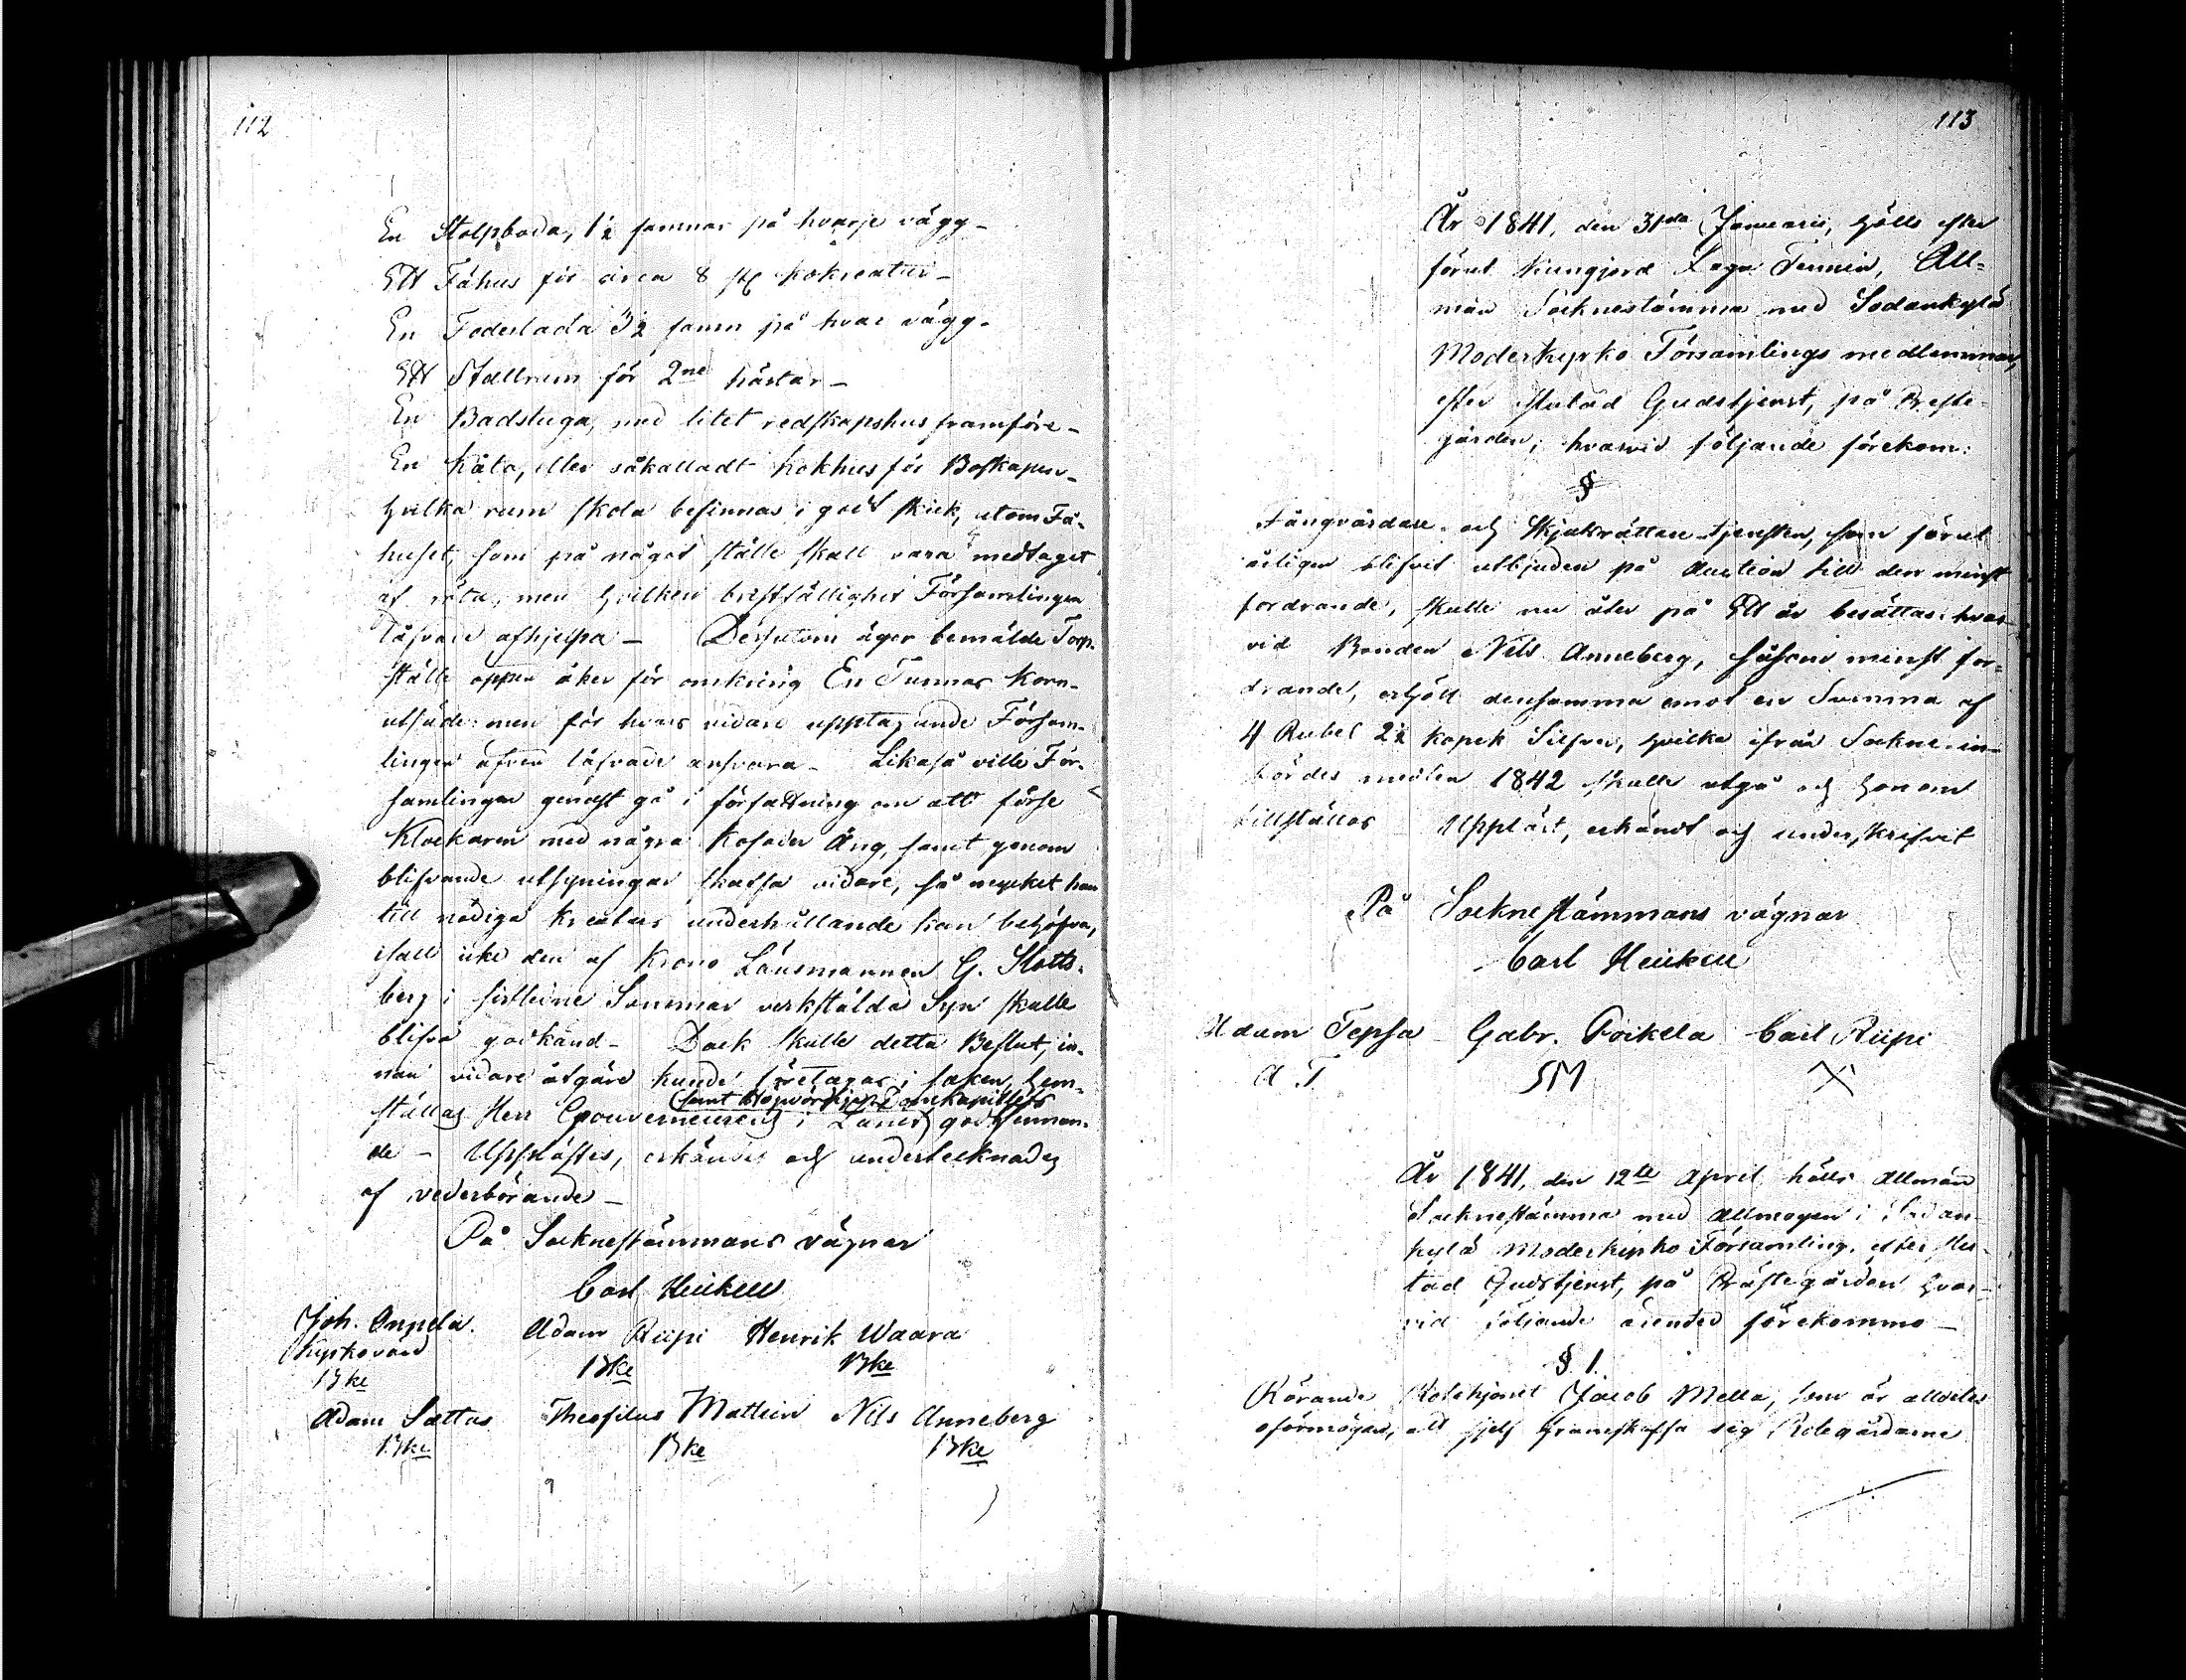 112
En Stolpboda, 1½ famnar på hvarje vägg –
Ett Fähus för circa 8 st kokreatur –
En Foderlada 3½ famn på hvar vägg –
Ett Stallrum för 2ne hästar –
En Badstuga, med litet redskapshus framföre –
En Kåta, eller såkalladt kokhus för Boskapen –
hvilka rum skola befinnas i godt skick, utom Fä-
huset, som på något ställe skall vara medtaget
af röta, men hvilken bristfällighet Församlingen
låfvade afhjelpa – Dessutom äger bemälde Torp-
ställe öppen åker för omkring En Tunnas Korn-
utsäde: men för hvars vidare upptagande Försam-
lingen äfven låfvade ansvara – Likaså ville För-
samlingen genast gå i författning om att förse
Klockaren med några Kofoder Äng, samt genom
blifvande utsyningar skaffa vidare, så mycket han
till nödiga kreaturs underhållande kan behöfva,
ifall icke den af Krono Länsmannen G. Slotts-
berg i sistledne Sommar verkstälda Syn skulle
blifva godkänd – Dock skulle detta Beslut, in-
nan vidare åtgärd kunde företagas i saken, hem-
samt Högvördige Domkapitlets
ställas Herr Gouverneurens i Länet godtfinnan-
de – Upplästes, erkändes och undertecknades
af vederbörande –
På Sockneståmmans vägnar
Carl Heickell
Joh. Onnela Adam Riipi Henrik Waara
Kyrkovärd
Bke Bke Bke
Adam Sattas Theofilus Mattein Nils Anneberg
Bke Bke Bke
113
År 1841, den 31sta Januarii, hölls efter
förut kungjord Laga Termin, All-
män Socknestämma med Sodankylä
Moderkyrko Församlings medlemmar,
efter slutad Gudstjenst, på Preste-
gården; hvarvid följande förekom:
§
Fångvårdare och Skjutsrättare tjensten, som förut
årligen blifvit utbjuden på Auction till den minst
fordrande, skulle nu åter på Ett år besättas: hvar-
vid Bonden Nils Anneberg, såsom minst for-
drande, erhöll densamma emot en Summa af
4 Rubel 2½ kopek Silfver, hvilka ifrån Sockne-in-
bördes medlen 1842 skulle utgå och honom
tillställas Uppläst, erkändt och underskrifvit
På Sockneståmmans vägnar
Carl Heickell
Adam Tepsa Gabr. Poikela Carl Riipi
A T SM X
År 1841, den 12te April hölls Allmän
Socknestämma med Allmogen i Sodan-
kylä Moderkyrko Församling, efter slu-
tad Gudstjenst, på Prästegården hvar-
vid följande ärender förekommo –
§ 1.
Rörande Rotehjonet Jacob Mella, som är alldeles
oförmögen, att sjelf framskaffa sig Rotegårdarne